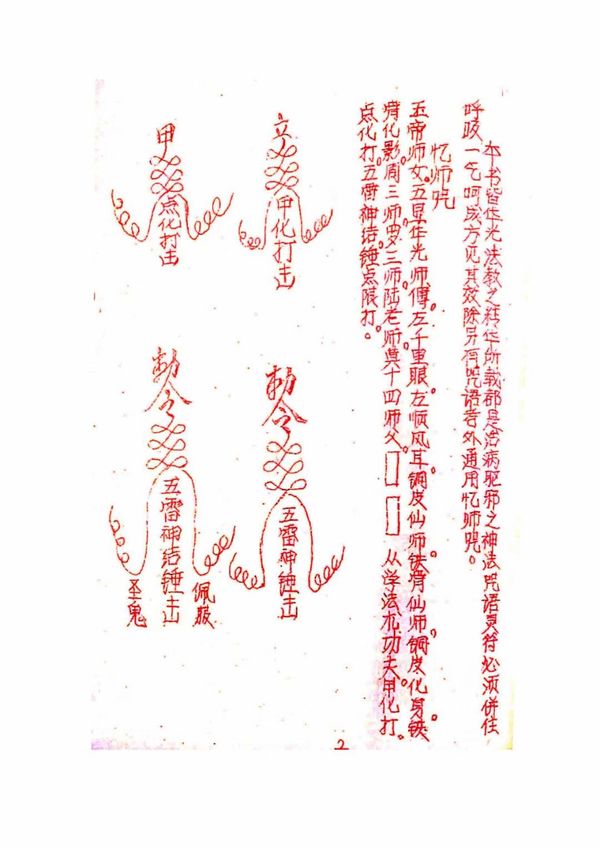 本书皆华光法教之精华所载都是治病驱邪之神法咒语灵符必须併住
呼吸一气呵成方见其效除另有咒语者外通用忆师咒。
忆师咒
玉帝师女。五显华光师傅。左千里眼。左顺风耳。铜皮仙师。铁背仙师。铜皮化身。铁
背化影。周三师。三师。陆老师。莫十四师父。从学法九功夫。甲化打。
点化打。五雷神结锤点限打。
立
甲化打击
甲
点化打击
勅令
五雷神锤击
勅令
五雷神结锤击
佩服
圣鬼
2